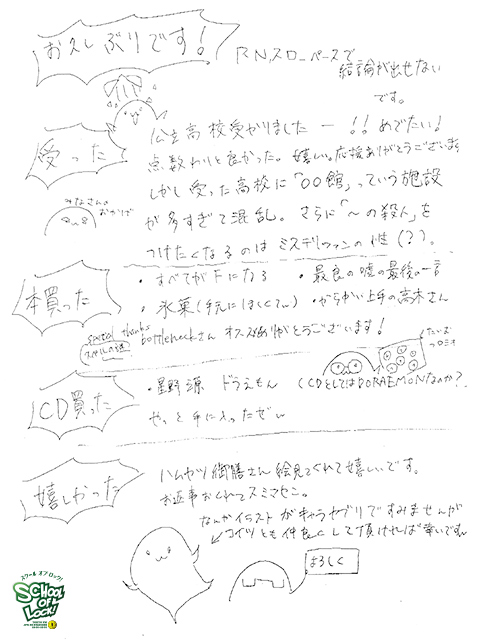 お久しぶりです!
RN.スローペースで
結論が出せない
です。
受かった
公立高校受かりましたー!!めでたい!
点数わりと良かった。嬉しい。応援ありがとうございます
しかし受った高校に「〇〇館」っていう施設
が多すぎて混乱。さらに「〜の殺人」を
つけたくなるのはミステリファンの性(?)。
みなさんの
おかげで
本買った
・すべてがFになる
・最良の嘘の最後の一言
・氷菓(手元にほしくてw)
・からかい上手の高木さん
special thanks
bottleneckさんオススメありがとうございます!
CD買った
・星野源 ドラえもん
(CDとしてはDORAEMONなのか?
やっと手に入ったぜw
嬉しかった
ハムカツ御膳さん絵見てくれて嬉しいです。
お返事おくれてスミマセン。
なんかイラストがキャラカブリですみませんが
コイツとも仲良くして頂ければ幸いですw
よろしく
スクールオブロック!
SCHOOL
OF
LOCK!